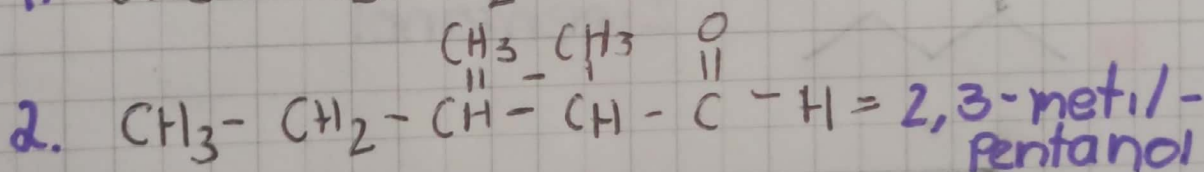 CH3 CH3 O
|| - | ||
2. CH3 - CH2 - CH - CH - C - H = 2,3-metil-
pentanol